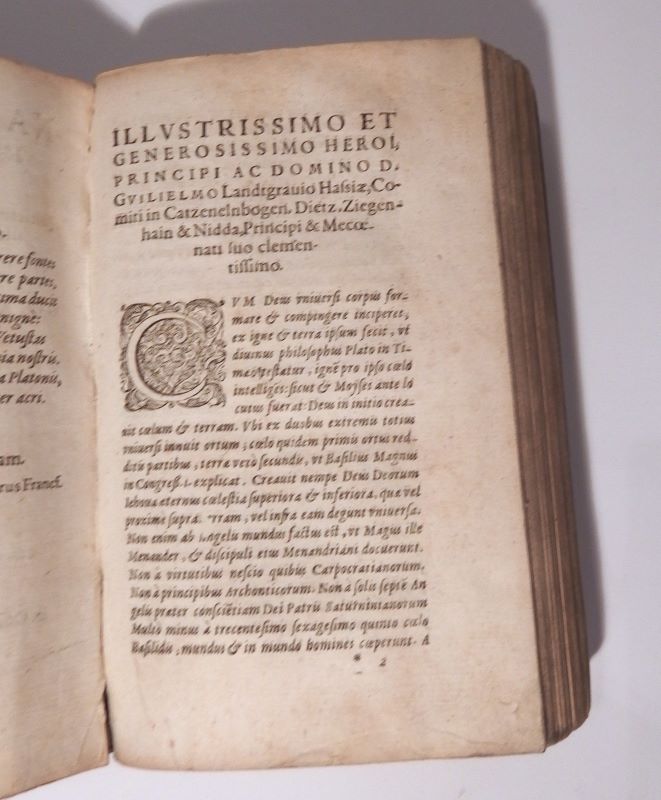 rere fontes
re partes,
ima ducis
nigne:
Vetustas
ia nostris,
a Platonis,
er acri.
am.
rus Francf.
ILLVSTRISSIMO ET
GENEROSISSIMO HEROI,
PRINCIPI AC DOMINO D.
GVILIELMO Landtgrauio Hassiæ, Co-
miti in Catzenelnbogen. Dietz. Ziegen-
hain & Nidda, Principi & Mecœ-
nati suo clemen-
tissimo.
CVM Deus vniuersi corpus for-
mare & compingere inciperet,
ex igne & terra ipsum fecit, vt
diuinus philosophus Plato in Ti-
testatur, ignē pro ipso cœlo
intelligēs: sicut & Moyses ante lo
cutus fuerat: Deus in initio crea-
uit cœlum & terram. Vbi ex duobus extremis totius
vniuersi innuit ortum, cœlo quidem primū ortus red-
dēs partibus, terra verò secundū, vt Basilius Magnus
in explicat. Creauit nempe Deus Deorum
Iehoua æternus cœlestia superiora & inferiora, quæ vel
proxime supra terram, vel infra eam degunt vniuersa.
Non enim ab Angelis mundus factus est, vt Magus ille
Menander, & discipuli eius Menandriani docuerunt.
Non à virtutibus nescio quibus Carpocratianorum.
Non à principibus Archonticorum. Non à solis septē An
gelis præter consciētiam Dei Patris Saturninianorum
Multò minus à trecentesimo sexagesimo quinto cœlo
Basilidis, mundus & in mundo homines cœperunt. A
* 2